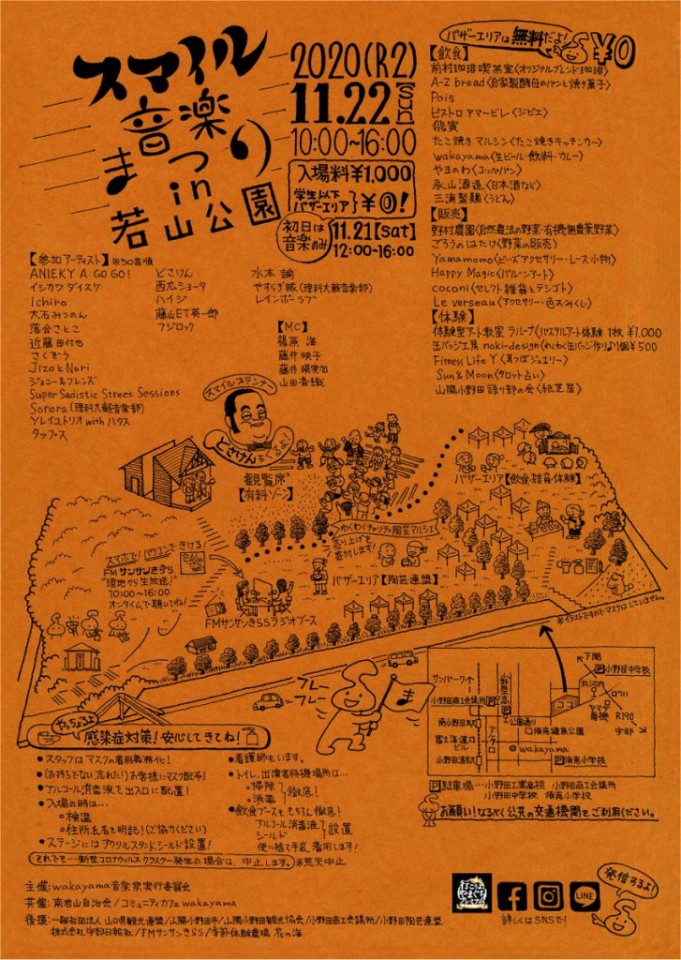 スマイル
音楽
まつり
in
若山公園
2020(R2)
11.22 SUN
10:00~16:00
入場料¥1,000
学生以下
バザーエリア}¥0!
初日は
音楽のみ
11.21【Sat】
12:00~16:00
バザーエリアは無料だよ!
¥0
【飲食】
前村珈琲喫茶室〈オリジナルブレンド珈琲〉
A-Z bread〈自家製酵母のパンと焼き菓子〉
Pois
ビストロ アマービレ〈ジビエ〉
飛寅
たこ焼き マルシン〈たこ焼きキッチンカー〉
wakayama〈生ビール・飲料・カレー〉
やまのわ〈コッペパン〉
永山酒造〈日本酒など〉
三濱製麺〈うどん〉
【販売】
野村農園〈自然農法の野菜・有機無農薬野菜〉
ごろうのはたけ〈野菜の販売〉
Yamamomo〈ビーズアクセサリー・レース小物〉
Happy Magic〈バルーンアート〉
coconi〈セレクト雑貨とテシゴト〉
Le verseau〈アクセサリー・色えみくじ〉
【体験】
体験型アート教室 ラパーナ〈パステルアート体験 1枚 ¥1,000
缶バッジ工房 noki-design〈わくわく缶バッジ作り♪1個¥500
Fitness Life Y〈耳つぼジュエリー〉
Sun&Moon〈タロット占い〉
山陽小野田語り部の会〈紙芝居〉
【参加アーティスト】※50音順
ANIEKY A GO GO!
イシカワ ダイスケ
Ichiro
大石みつのん
落合さとこ
近藤田也
さくぞう
Jizo と Nori
ジョニー&フレンズ
Super Sadistic Street Sessions
Sonora(理科大軽音楽部)
ソレイユトリオ with ハクス
タップス
どさけん
西本ショータ
ハイジ
藤山ET英一郎
フジロック
水本 諭
やすらぎ隊(理科大軽音楽部)
レインボーラブ
【MC】
篠原 海
藤井 映子
藤井 順実加
山田 香織
スマイルプランナー
どさけんもくるよ!
観覧席
【有料ゾーン】
バザーエリア【飲食・雑貨・体験】
わくわくチャリティ陶芸マルシェ
売り上げを
寄付します!
バザーエリア【陶芸連盟】
スマホで!パソコンできける
FMサンサンきらら
現地から生放送!
10:00~16:00
オンタイムで聴いてね!
FMサンサンきららラジオブース
※イラストですのでマスクはしていません。
フレー
フレー
ま
サンパークイオ
小野田商工会議所 P
南小野田駅
富士海運ロビル
小野田港駅
小野田工業高校
工公園通り
P 須恵健康公園
wakayama
P 須恵小学校
下関
小野田中学校
丸河内
ヤマダ電機
R190
宇部
P 駐車場…小野田工業高校 小野田商工会議所
小野田中学校 須恵小学校
お願い!なるべく公共の交通機関をご利用ください。
やっちょるよ
感染症対策!安心してきてね!
●スタッフはマスクの着用義務化!
●(お持ちでない、忘れた!)お客様にマスク配布!
●アルコール消毒液を出入口に配置!
●入場の時は…
・検温
・住所氏名を明記!(ご協力ください)
●ステージにはアクリルスタンド、シールド設置!
●看護師もいます。
●トイレ、出演者待機場所は…
・掃除
・消毒}徹底!
●飲食ブースももちろん徹底!
アルコール消毒液
シールド}設置
使い捨て手袋着用します!
それでも…新型コロナウィルスクラスター発生の場合は、中止します。※荒天中止
主催:wakayama音楽祭実行委員会
共催:南若山自治会/コミュニティカフェwakayama
後援:一般社団法人 山口県観光連盟/山陽小野田市/山陽小野田観光協会/小野田商工会議所/小野田陶芸連盟
株式会社宇部日報社/FMサンサンきらら/季節体験農場 花の海
LINE
詳しくはSNSで!
発信するよ!